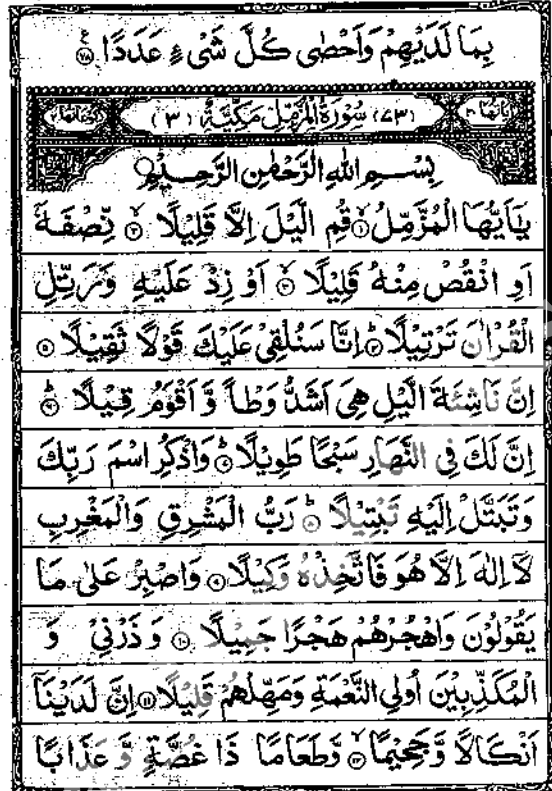 بِمَا لَدَيْهِمْ وَاَحْصٰى كُلَّ شَىْءٍ عَدَدًا ﴿۲۸﴾
اٰيَاتُهَا ۲۰ (۷۳) سُوْرَةُ الْمُزَّمِّلِ مَكِّيَّةٌ (۳) رُكُوْعَاتُهَا ۲
بِسْمِ اللهِ الرَّحْمٰنِ الرَّحِيْمِ
يٰۤاَيُّهَا الْمُزَّمِّلُ ۙ﴿۱﴾ قُمِ الَّيْلَ اِلَّا قَلِيْلًا ۙ﴿۲﴾ نِّصْفَهٗۤ
اَوِ انْقُصْ مِنْهُ قَلِيْلًا ۙ﴿۳﴾ اَوْ زِدْ عَلَيْهِ وَرَتِّلِ
الْقُرْاٰنَ تَرْتِيْلًا ؕ﴿۴﴾ اِنَّا سَنُلْقِىْ عَلَيْكَ قَوْلًا ثَقِيْلًا ﴿۵﴾
اِنَّ نَاشِئَةَ الَّيْلِ هِىَ اَشَدُّ وَطْاً وَّاَقْوَمُ قِيْلًا ؕ﴿۶﴾
اِنَّ لَكَ فِى النَّهَارِ سَبْحًا طَوِيْلًا ؕ﴿۷﴾ وَاذْكُرِ اسْمَ رَبِّكَ
وَتَبَتَّلْ اِلَيْهِ تَبْتِيْلًا ؕ﴿۸﴾ رَبُّ الْمَشْرِقِ وَالْمَغْرِبِ
لَاۤ اِلٰهَ اِلَّا هُوَ فَاتَّخِذْهُ وَكِيْلًا ﴿۹﴾ وَاصْبِرْ عَلٰى مَا
يَقُوْلُوْنَ وَاهْجُرْهُمْ هَجْرًا جَمِيْلًا ﴿۱۰﴾ وَذَرْنِىْ وَ
الْمُكَذِّبِيْنَ اُولِى النَّعْمَةِ وَمَهِّلْهُمْ قَلِيْلًا ﴿۱۱﴾ اِنَّ لَدَيْنَاۤ
اَنْكَالًا وَّجَحِيْمًا ۙ﴿۱۲﴾ وَّطَعَامًا ذَا غُصَّةٍ وَّعَذَابًا